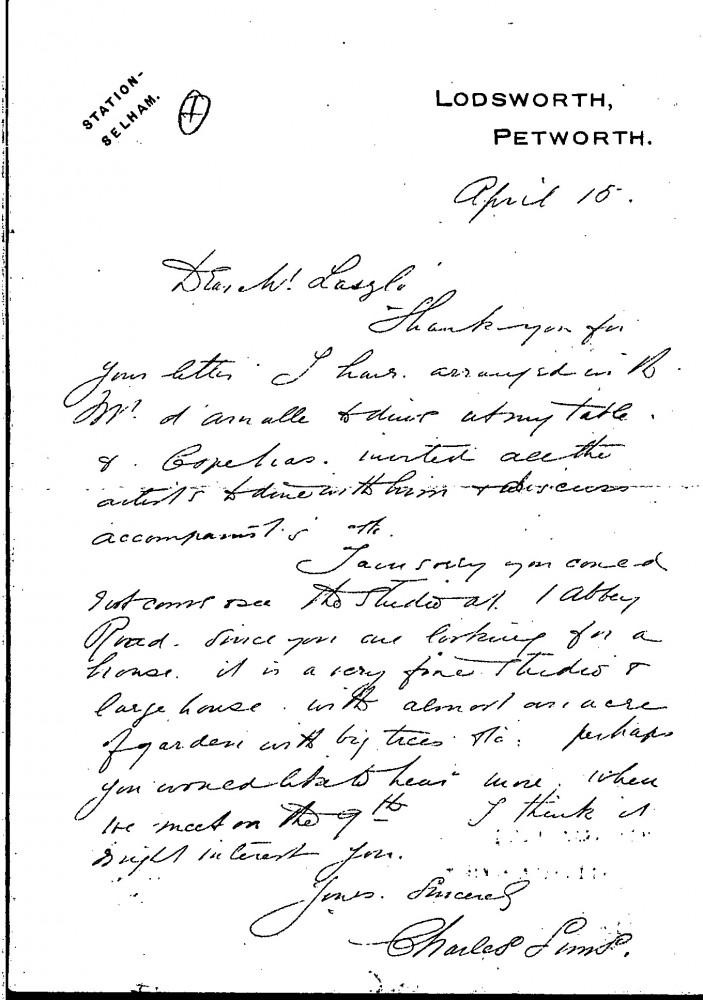 STATION-
SELHAM.
1
LODSWORTH,
PETWORTH.
April 15.
Dear Mr. Laszlo
Thank you for
your letter I have arranged with
Mr. d'Arnalle to dine at my table.
& Cope has invited all the
artists to dine with him & discuss
accompanist's etc.
I am sorry you could
not come & see the studio at 1 Abbey
Road. Since you are looking for a
house. it is a very fine studio &
large house. with almost an acre
of garden with big trees etc. perhaps
you would like to hear more when
we meet on the 9th I think it
might interest you.
Yours. Sincerely
Charles Sims.